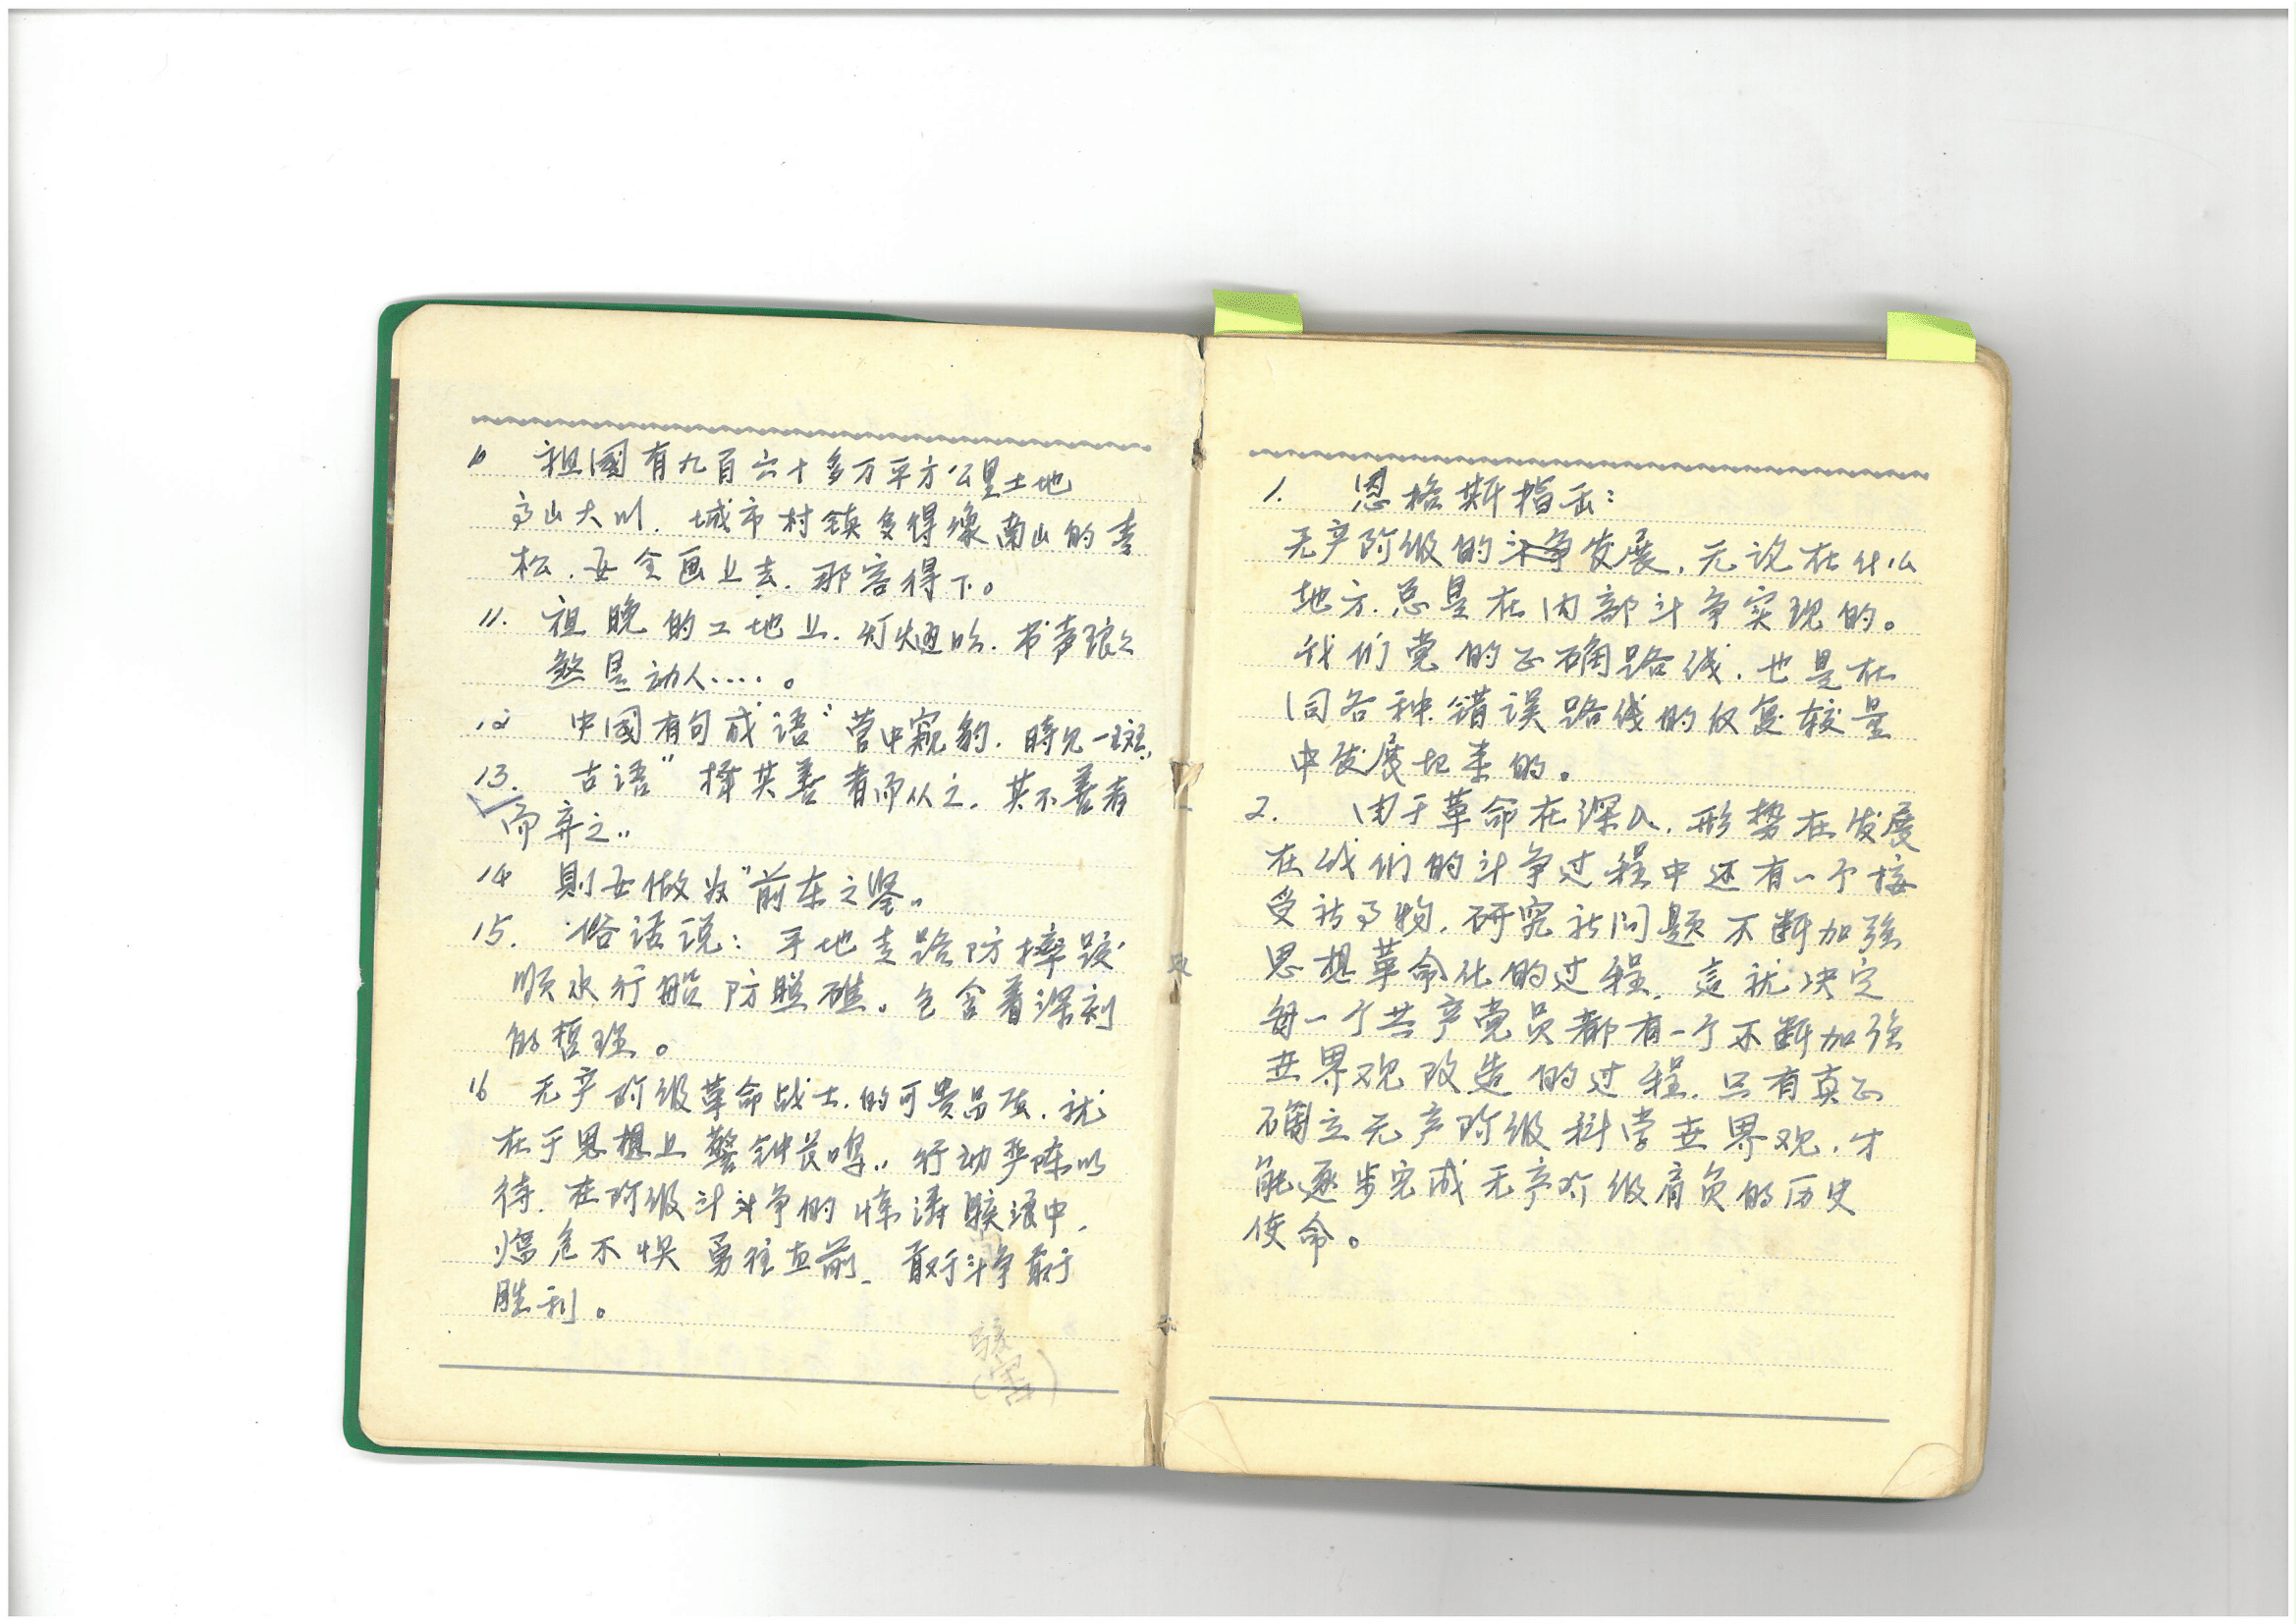 10 祖國有九百六十多万平方公里土地
高山大川．城市村镇多得像南山的青
松．要全画上去．那容得下。
11. 祖晚的工地上．灯火通明．书声琅々
煞是动人‥‥。
12 中國有句成语“营中窥豹．時见一斑”
13. 古语“择其善者而从之．其不善者
而弃之”
14 則要做为“前车之鉴”
15. 俗话说：平地走路防摔跤
顺水行船防暗礁。包含着深刻
的哲理。
16 无产阶级革命战士．的可贵品质．就
在于思想上警钟长鸣”行动严阵以
待．在阶级斗争的惊涛骇浪中．
临危不惧 勇往直前．敢于斗争敢于
胜利。
骇
1. 恩格斯指出：
无产阶级的斗争发展．无论在什么
地方．总是在内部斗争实现的。
我们党的正确路线．也是在
同各种错误路线的反复较量
中发展起来的。
2. 由于革命在深入．形势在发展
在我们的斗争过程中还有一个接
受新事物．研究新问题不断加強
思想革命化的过程．這就决定
每一个共产党员都有一个不断加強
世界观改造的过程．只有真正
确立无产阶级科学世界观．才
能逐步完成无产阶级肩负的历史
使命。